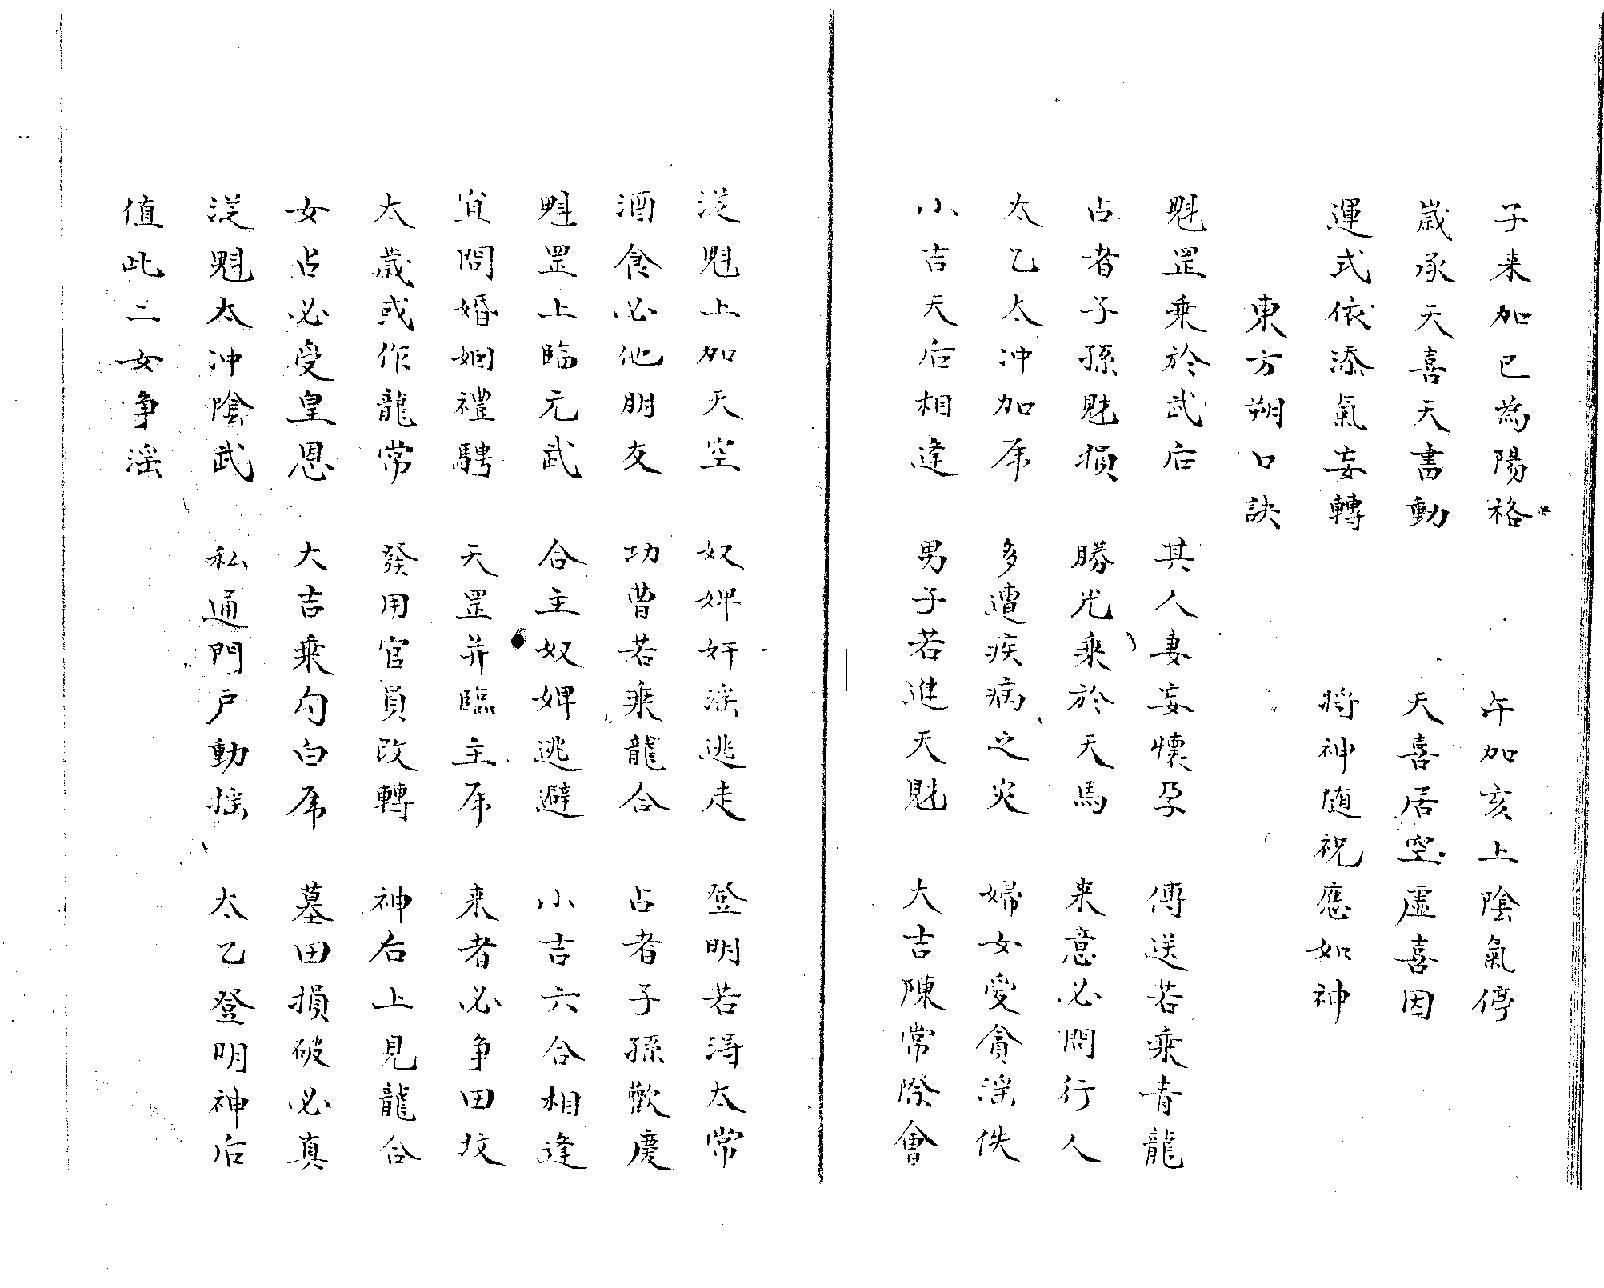 子来加巳為陽格 午加亥上陰氣停
歲承天喜天書動 天喜居空虛喜因
運式依添氣妄轉 將神随祝應如神
東方朔口訣
魁罡乘於武后 其人妻妄懷孕 傳送若乘青龍
占者子孫財損 勝光乘於天馬 来意必問行人
太乙太冲加虎 多遭疾病之災 婦女愛貪淫佚
小吉天后相逢 男子若進天財 大吉陳常際會
從魁上加天空 奴婢奸淫逃走 登明若淂太常
酒食必他朋友 功曹若乘龍合 占者子孫歡慶
魁罡上臨元武 合主奴婢逃避 小吉六合相逢
宜問婚姻禮騁 天罡并臨主虎 来者必争田坟
太歲或作龍常 發用官員改轉 神后上見龍合
女占必受皇恩 大吉乘勾白虎 墓田損破必真
從魁太冲陰武 私通門户動摇 太乙登明神后
值此二女争淫